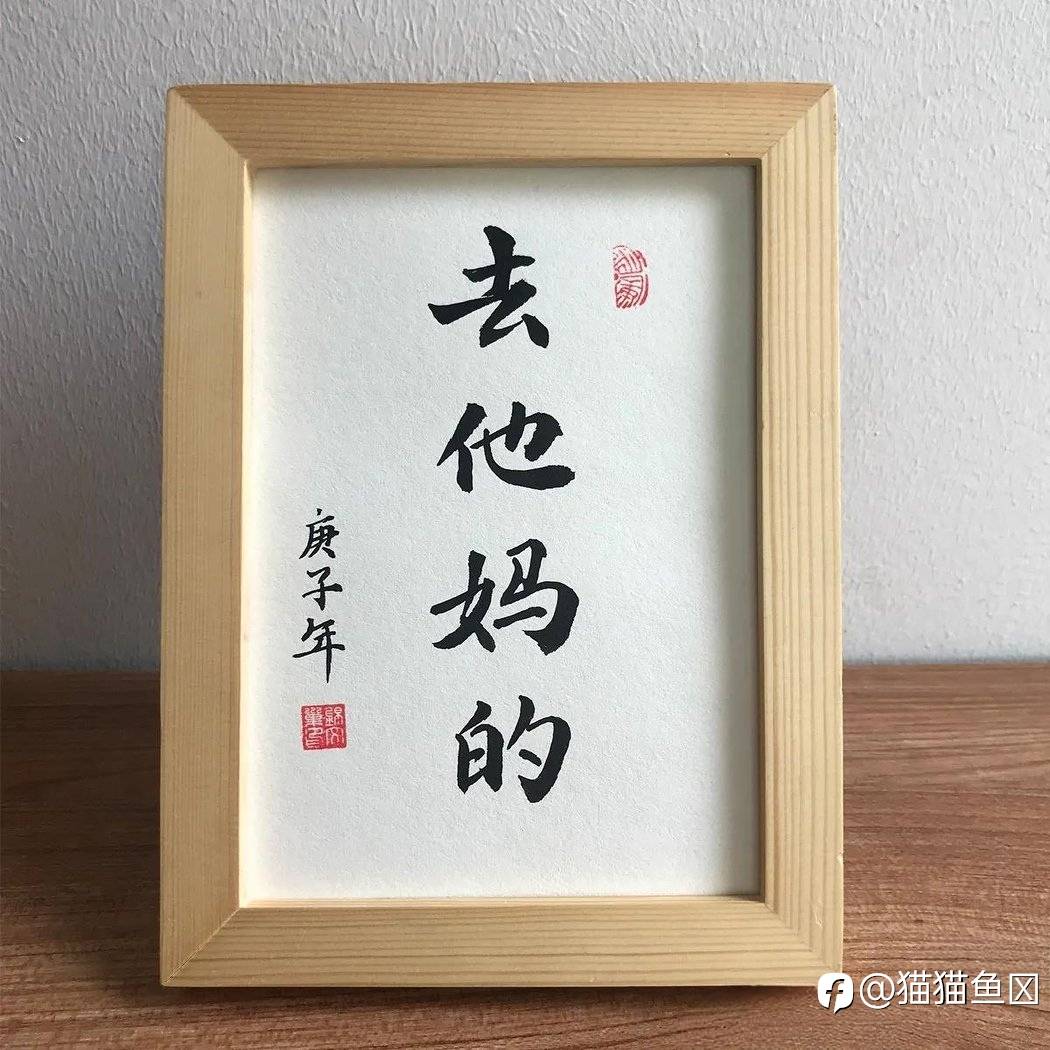 去他妈的
庚子年
@猫猫鱼囡